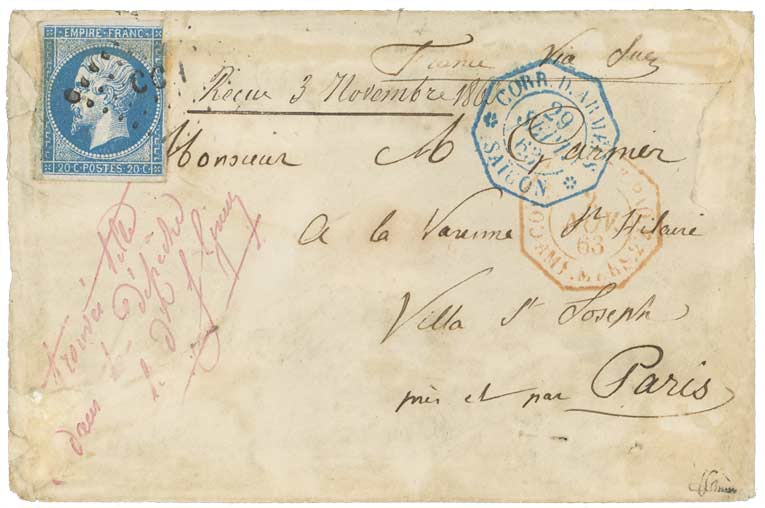 EMPIRE FRANC
20 C POSTES 20 C
France Via Suez
Reçue 3 Novembre 186
CORR. D. ARMÉES
29
SEPT
63
SAIGON
Monsieur M Garnier
NOV.
63
A la Varenne St Hilaire
Villa St Joseph
près et par Paris
trouvée telle
dans la dépêche